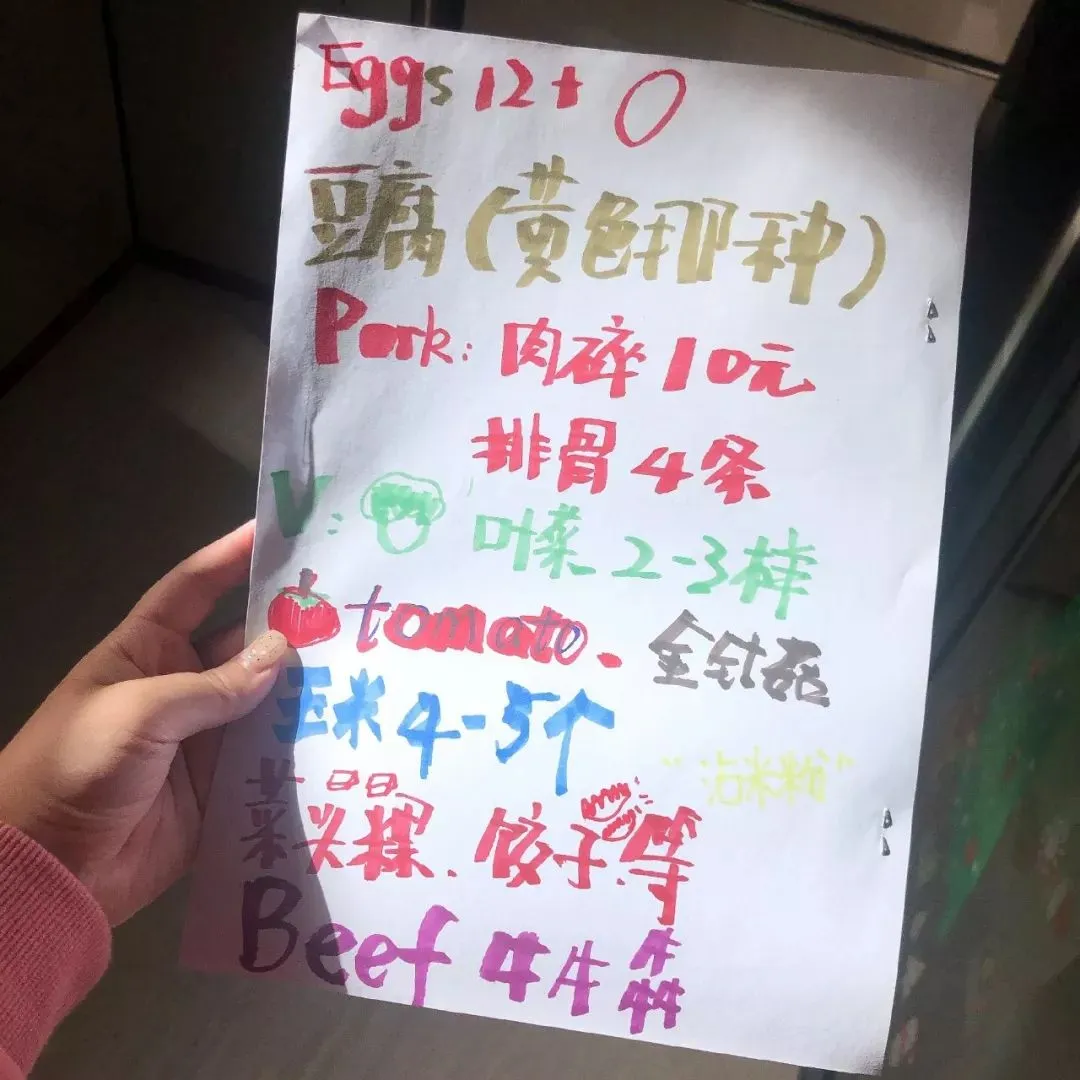 Eggs 12+
豆腐(黄色那种)
Pork: 肉碎10元
排骨4条
V: 叶菜 2-3样
tomato. 金针菇
玉米4-5个
"沾米粉"
菜头粿. 饺子.等
Beef 牛牛牛牛牛